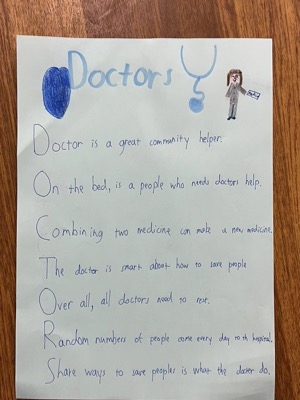 Doctors
Doctor is a great community helper.
On the bed, is a people who needs doctors help.
Combining two medicine can make a new medicine.
The doctor is smart about how to save people
Over all, all doctors need to rest.
Random numbers of people come every day to th hospital.
Share ways to save peoples is what the doctor do.